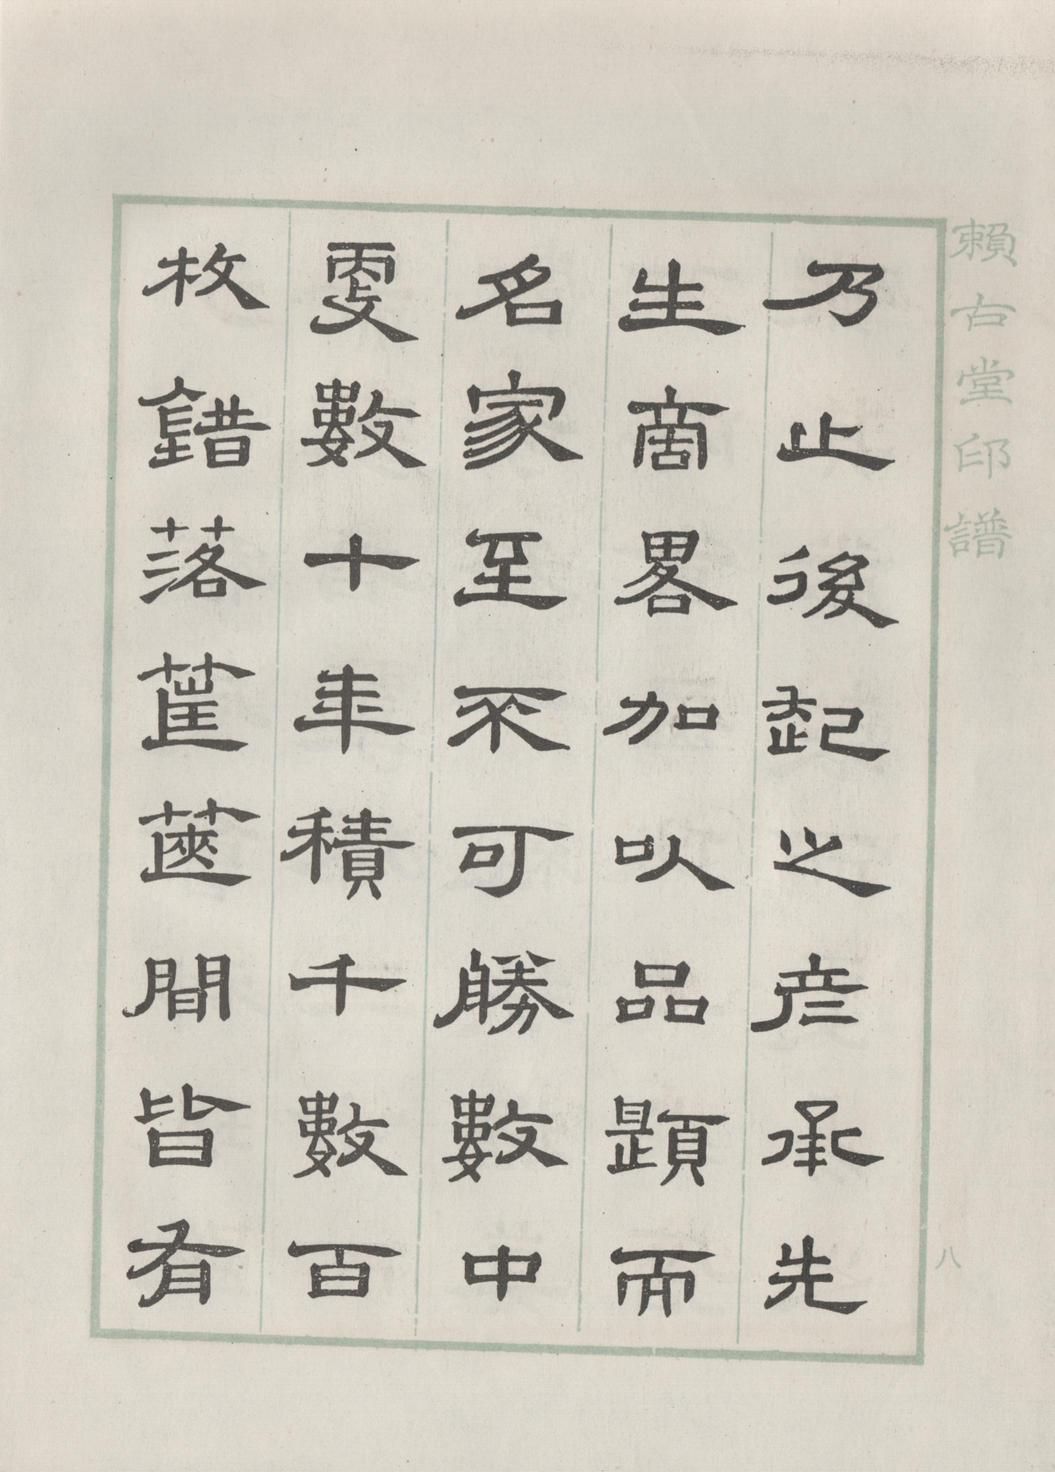 賴古堂印譜
八
乃止後起之彦承先
生商畧加以品題而
名家至不可勝數中
更數十年積千數百
枚錯落筐篋間皆有